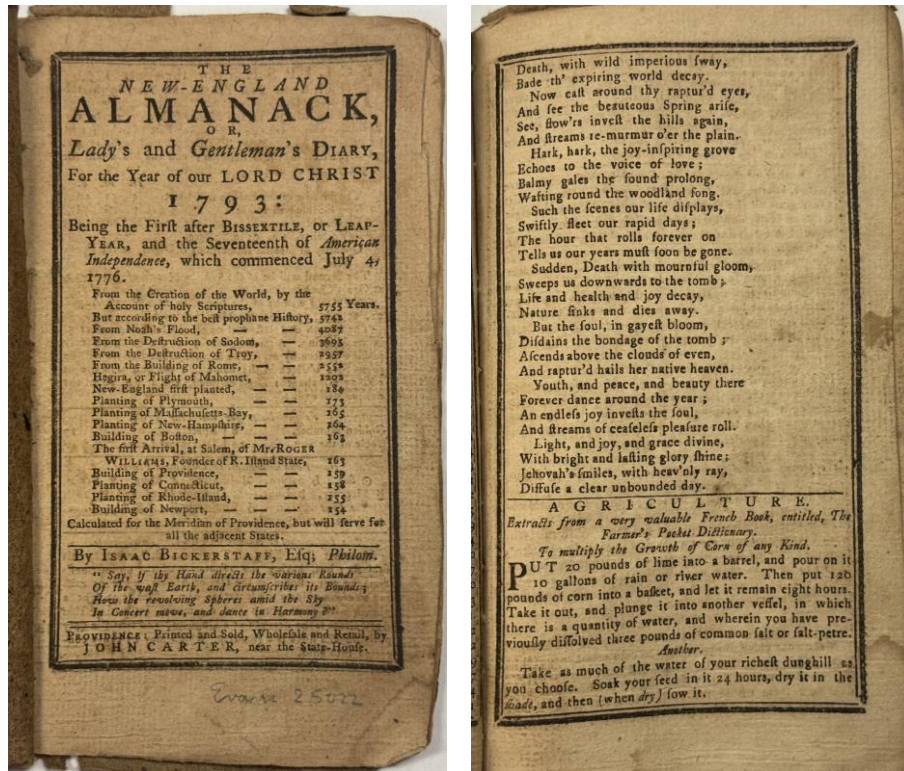 THE
NEW-ENGLAND
ALMANACK,
OR,
Lady's and Gentleman's DIARY,
For the Year of our LORD CHRIST
1793:
Being the Firſt after BISSEXTILE, or LEAP-
YEAR, and the Seventeenth of American
Independence, which commenced July 4,
1776.
From the Creation of the World, by the
Account of holy Scriptures, 5755 Years.
But according to the beſt prophane Hiſtory, 5742
From Noah's Flood, — — 4087
From the Deſtruction of Sodom, — 3695
From the Deſtruction of Troy, — 2957
From the Building of Rome, — — 2552
Hegira, or Flight of Mahomet, — 1202
New-England firſt planted, — — 184
Planting of Plymouth, — — 173
Planting of Maſſachuſetts-Bay, — 165
Planting of New-Hampſhire, — — 164
Building of Boſton, — — — 163
The firſt Arrival, at Salem, of Mr. ROGER
WILLIAMS, Founder of R. Iſland State, 163
Building of Providence, — — 159
Planting of Connecticut, — — 158
Planting of Rhode-Iſland, — — 155
Building of Newport, — — 154
Calculated for the Meridian of Providence, but will ſerve for
all the adjacent States.
By ISAAC BICKERSTAFF, Eſq; Philom.
“ Say, if thy Hand directs the various Rounds
Of the vaſt Earth, and circumſcribes its Bounds;
How the revolving Spheres amid the Sky
In Concert move, and dance in Harmony?”
PROVIDENCE: Printed and Sold, Wholeſale and Retail, by
JOHN CARTER, near the State-Houſe.
Evans
Death, with wild imperious ſway,
Bade th' expiring world decay.
Now caſt around thy raptur'd eyes,
And ſee the beauteous Spring ariſe,
See, flow'rs inveſt the hills again,
And ſtreams re-murmur o'er the plain.
Hark, hark, the joy-inſpiring grove
Echoes to the voice of love;
Balmy gales the ſound prolong,
Wafting round the woodland ſong.
Such the ſcenes our life diſplays,
Swiftly fleet our rapid days;
The hour that rolls forever on
Tells us our years muſt ſoon be gone.
Sudden, Death with mournful gloom,
Sweeps us downwards to the tomb;
Life and health and joy decay,
Nature ſinks and dies away.
But the ſoul, in gayeſt bloom,
Diſdains the bondage of the tomb;
Aſcends above the clouds of even,
And raptur'd hails her native heaven.
Youth, and peace, and beauty there
Forever dance around the year;
An endleſs joy inveſts the ſoul,
And ſtreams of ceaſeleſs pleaſure roll.
Light, and joy, and grace divine,
With bright and laſting glory ſhine;
Jehovah's ſmiles, with heav'nly ray,
Diffuſe a clear unbounded day.
AGRICULTURE.
Extracts from a very valuable French Book, entitled, The
Farmer's Pocket Dictionary.
To multiply the Growth of Corn of any Kind.
PUT 20 pounds of lime into a barrel, and pour on it
10 gallons of rain or river water. Then put 120
pounds of corn into a baſket, and let it remain eight hours.
Take it out, and plunge it into another veſſel, in which
there is a quantity of water, and wherein you have pre-
viouſly diſſolved three pounds of common ſalt or ſalt-petre.
Another.
Take as much of the water of your richeſt dunghill as
you chooſe. Soak your ſeed in it 24 hours, dry it in the
ſhade, and then (when dry) ſow it.